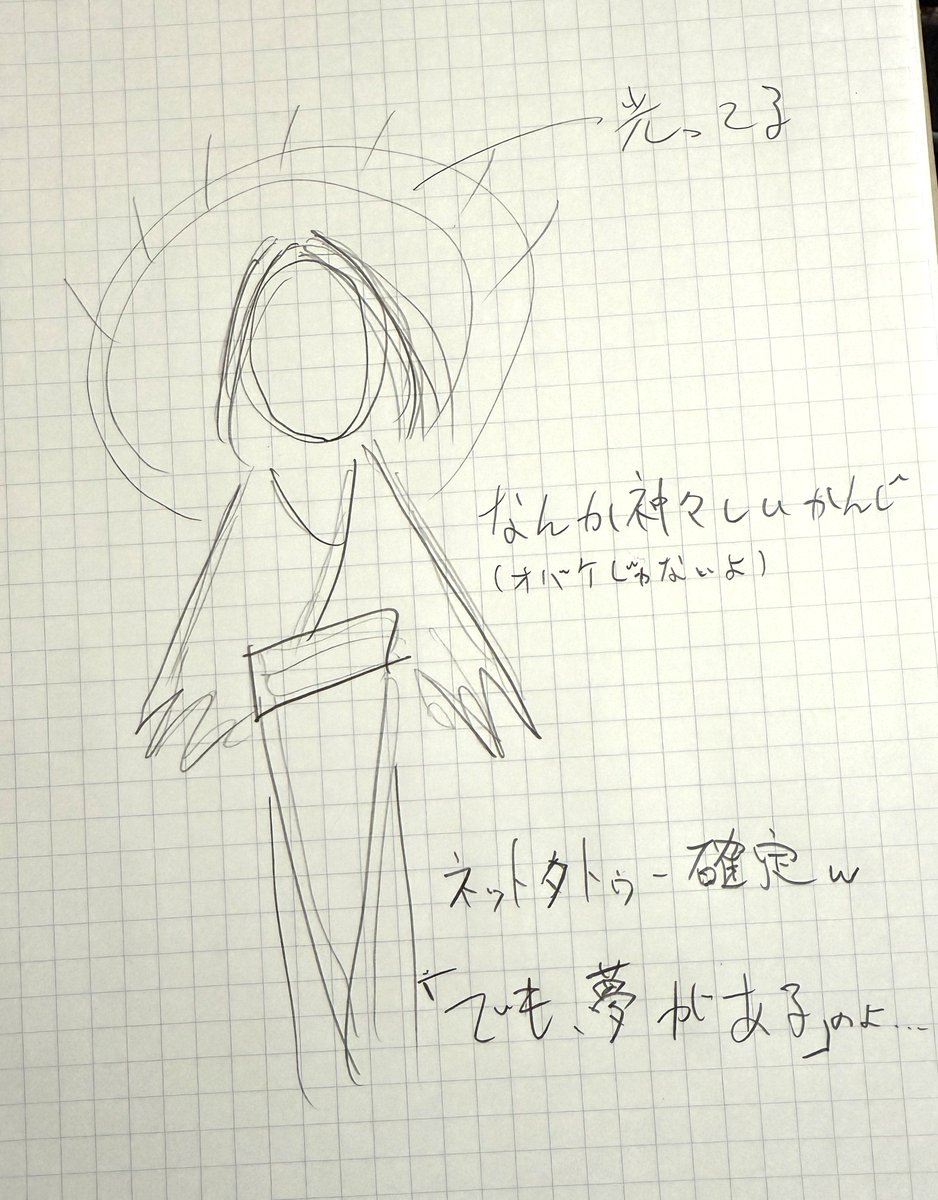 光ってる
なんか神々しいかんじ
(オバケじゃないよ)
ネットタトゥー確定w
「でも、夢がある」のよ...